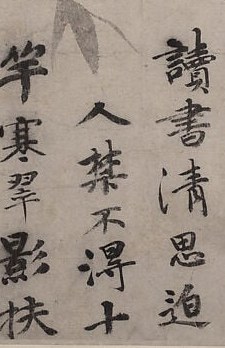 讀書清思迫
人禁不得十
竿寒翠影扶